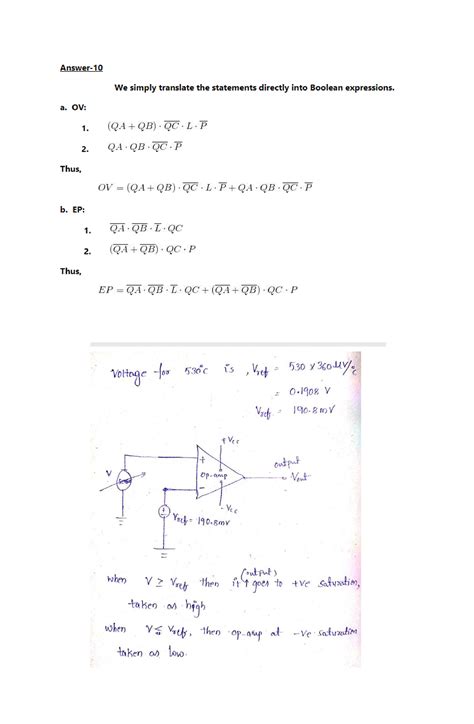 Answer-10
We simply translate the statements directly into Boolean expressions.
a. OV:
1. (QA + QB) · Q̅C̅ · L · P̅
2. QA · QB · Q̅C̅ · P̅
Thus,
OV = (QA + QB) · Q̅C̅ · L · P̅ + QA · QB · Q̅C̅ · P̅
b. EP:
1. Q̅A̅ · Q̅B̅ · L̅ · QC
2. (Q̅A̅ + Q̅B̅) · QC · P
Thus,
EP = Q̅A̅ · Q̅B̅ · L̅ · QC + (Q̅A̅ + Q̅B̅) · QC · P
Voltage for 530°C is, Vref = 530 x 360 μV/°c
= 0.1908 V
Vref = 190.8mV
+Vcc
V
+
op-amp
-
output
Vout
-Vcc
Vref = 190.8mv
when V ≥ Vref then it (output) goes to +ve saturation,
taken as high
when V ≤ Vref, then op-amp at -ve saturation
taken as low.